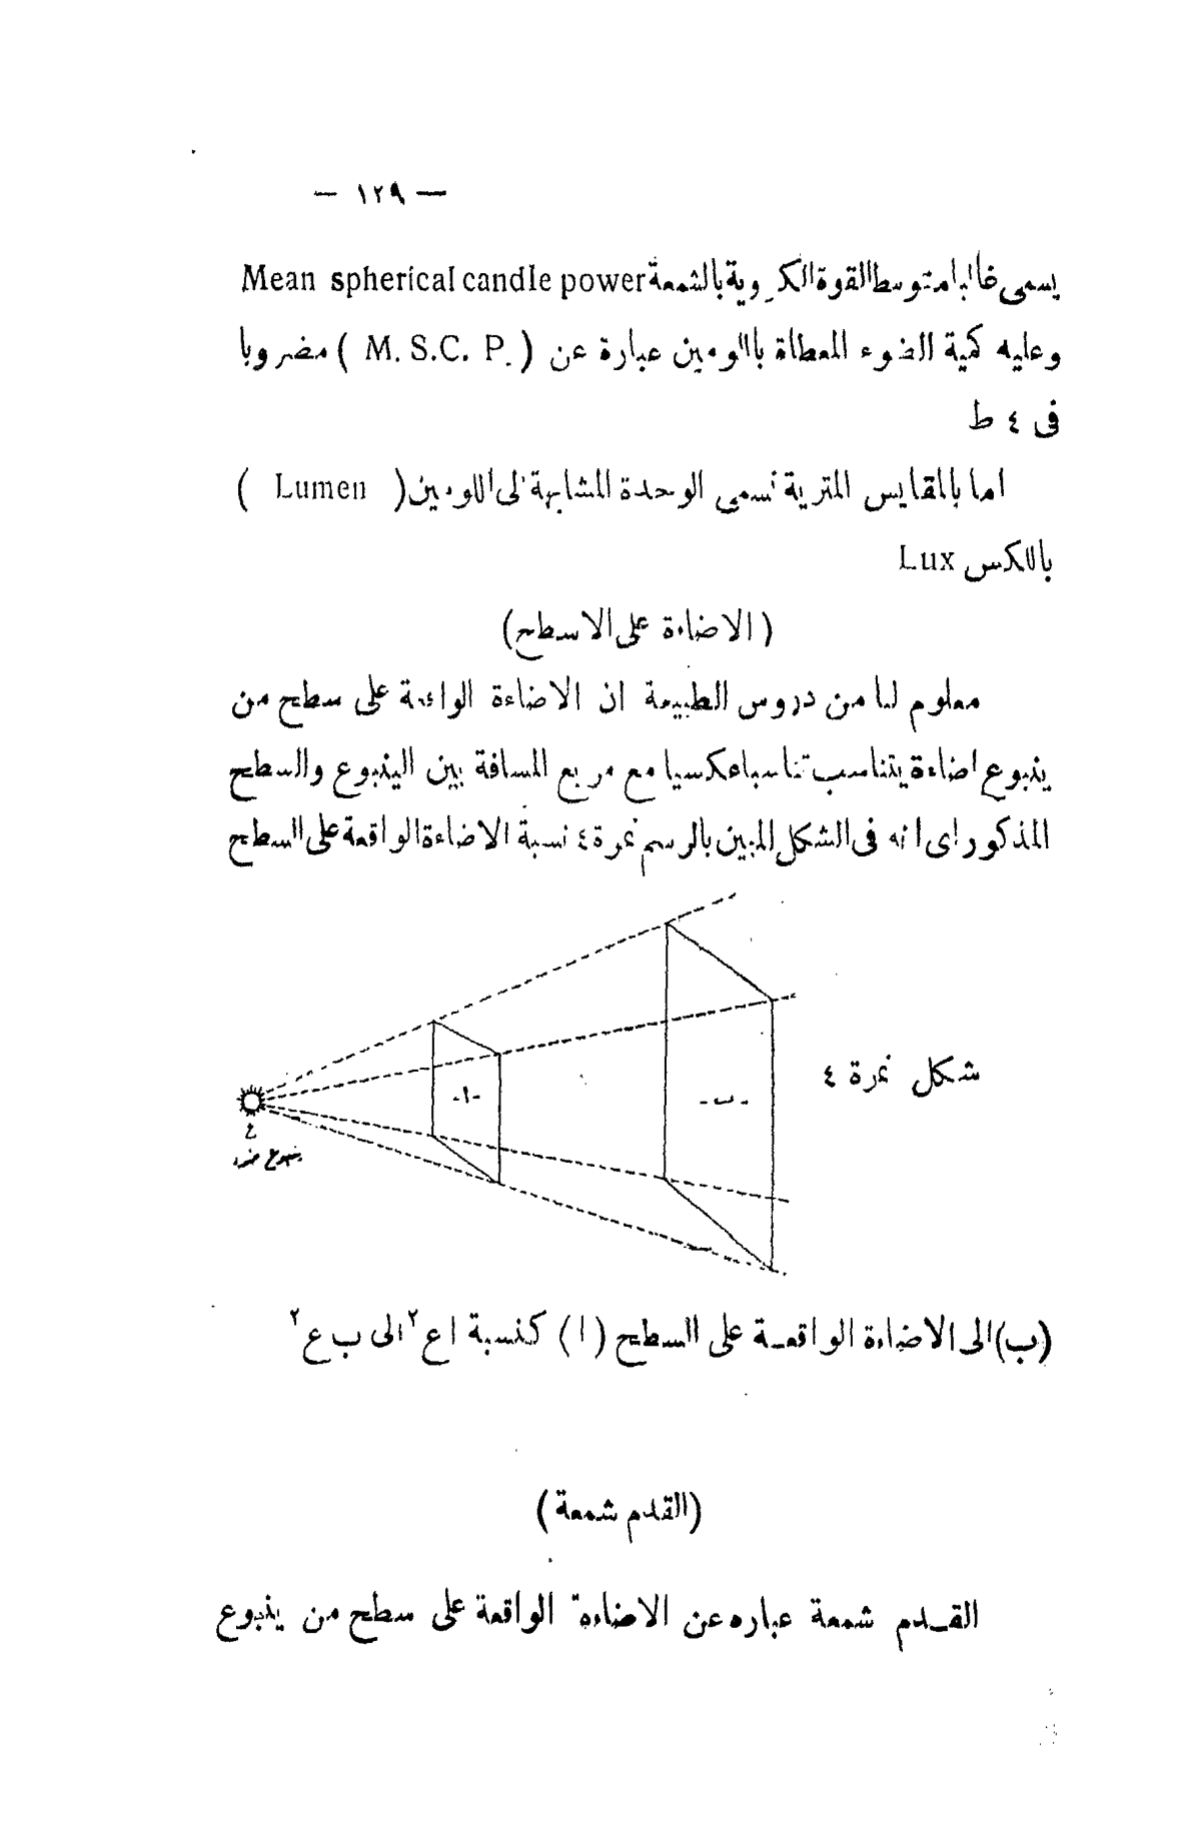 — ١٢٩ —
يسمى غالبا متوسط القوة الكروية بالشمعة Mean spherical candle power
وعليه كمية الضوء المعطاة بالومين عبارة عن ( M. S.C. P. ) مضروبا
فى ٤ ط
اما بالمقايس المترية تسمى الوحدة المشابهة الى اللومين ( Lumen )
باللكس Lux
( الاضاءة على الاسطح )
معلوم لنا من دروس الطبيعة ان الاضاءة الواقعة على سطح من
ينبوع اضاءة يتناسب تناسبا عكسيا مع مربع المسافة بين الينبوع والسطح
المذكور اى انه فى الشكل المبين بالرسم نمرة ٤ نسبة الاضاءة الواقعة على السطح
-ا-
-ب-
شكل نمرة ٤
ع
ينبوع ضوء
(ب) الى الاضاءة الواقعة على السطح ( ا ) كنسبة ا ع ٢ الى ب ع ٢
( القدم شمعة )
القدم شمعة عباره عن الاضاءة الواقعة على سطح من ينبوع